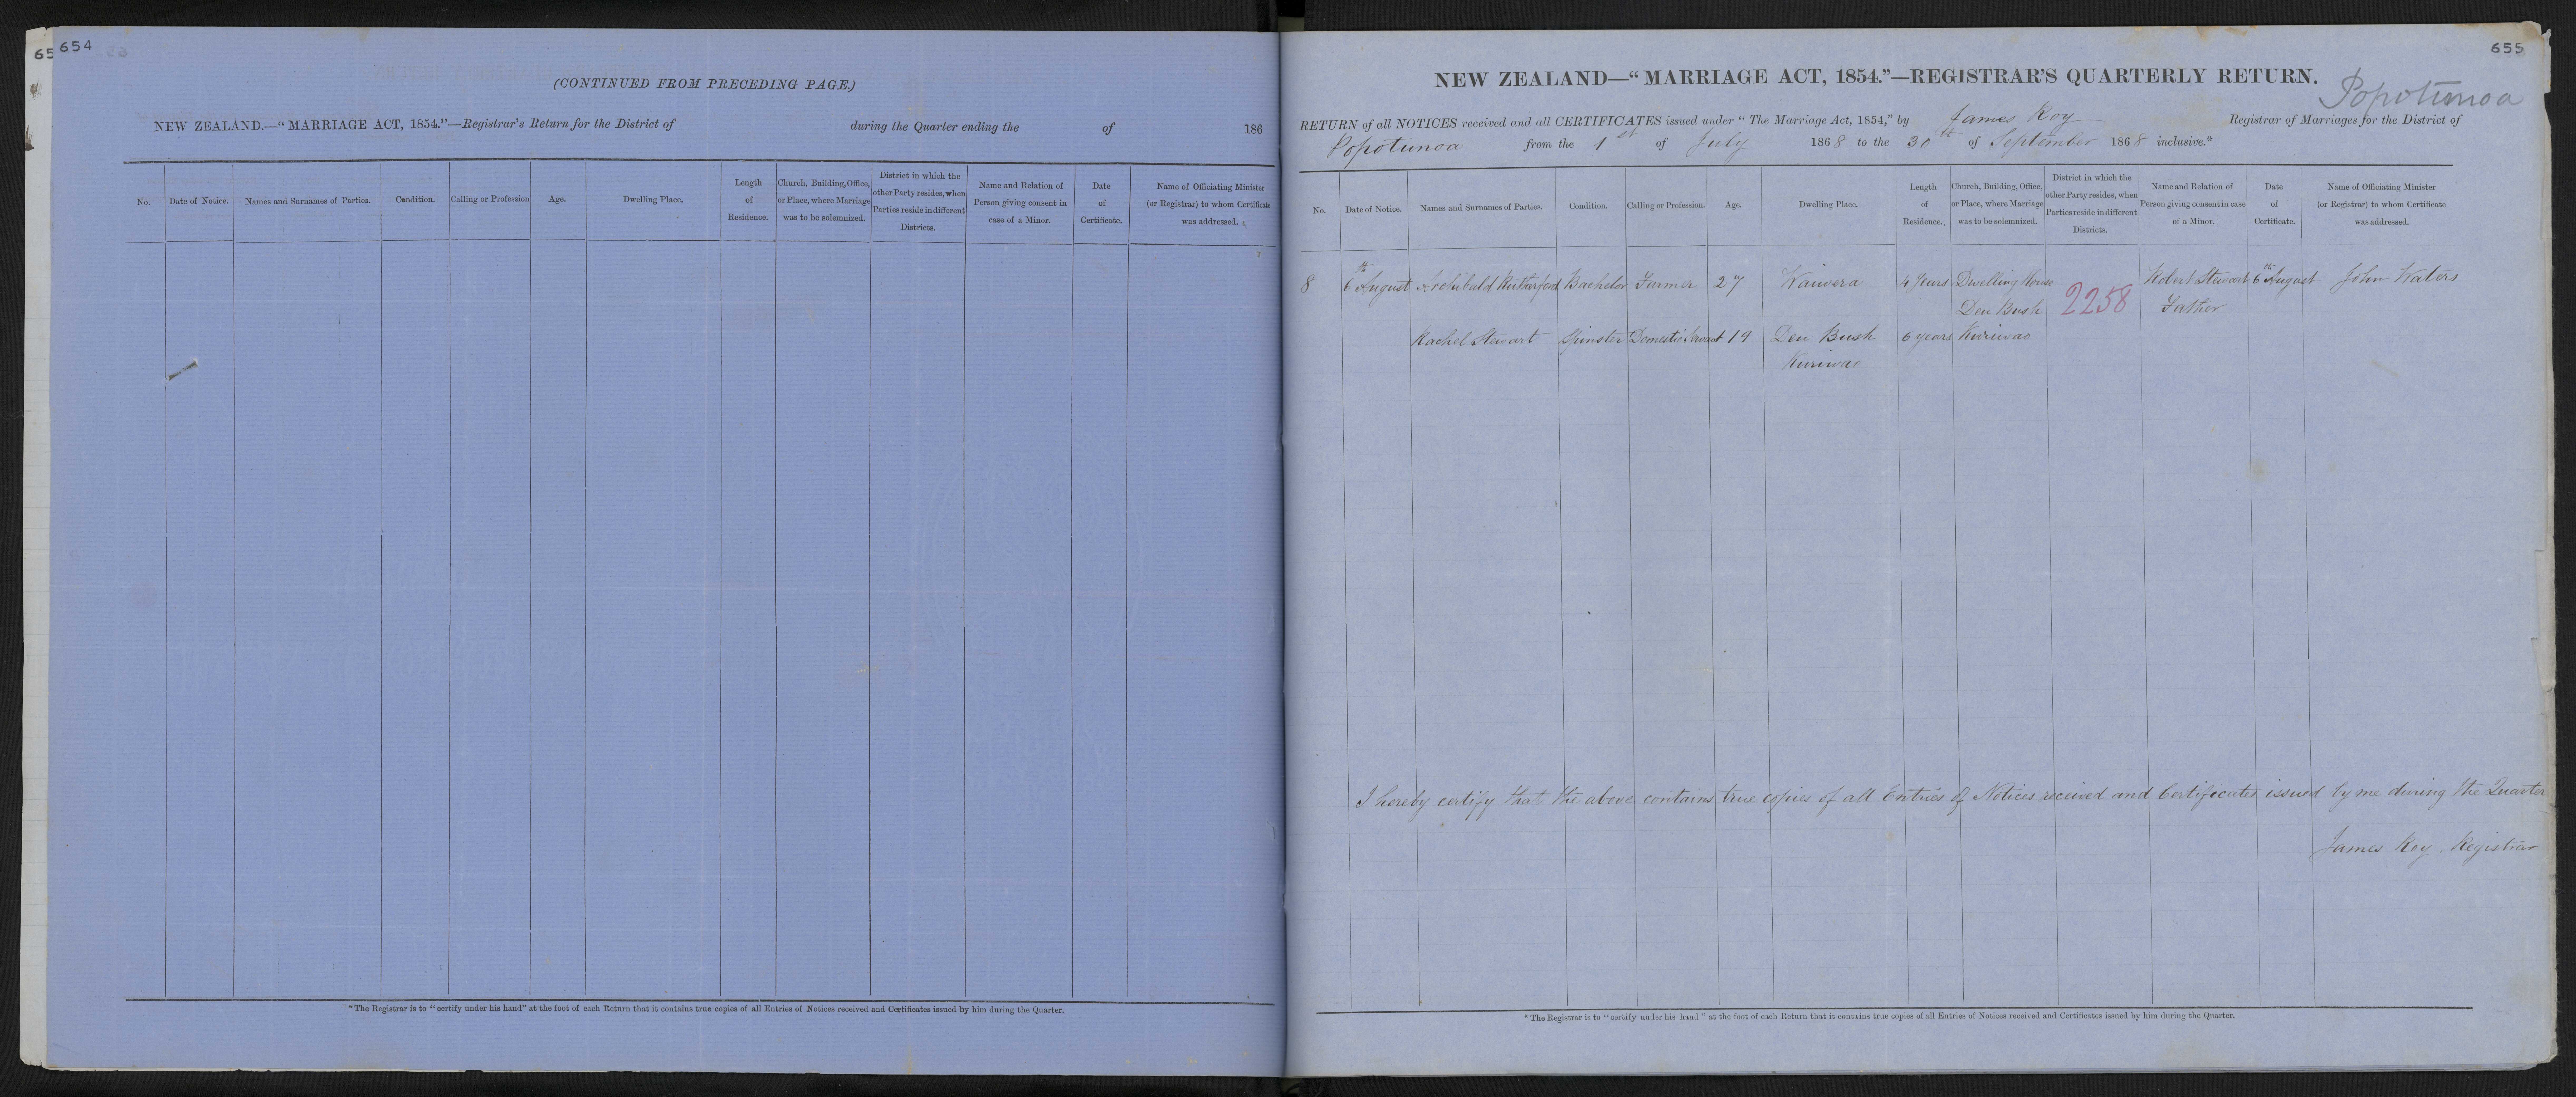 65
654
(CONTINUED FROM PRECEDING PAGE.)
NEW ZEALAND.—"MARRIAGE ACT, 1854."—Registrar's Return for the District of during the Quarter ending the of 186
No. Date of Notice. Names and Surnames of Parties. Condition. Calling or Profession Age. Dwelling Place. Length of Residence. Church, Building, Office, or Place, where Marriage was to be solemnized. District in which the other Party resides, when Parties reside in different Districts. Name and Relation of Person giving consent in case of a Minor. Date of Certificate. Name of Officiating Minister (or Registrar) to whom Certificate was addressed.
* The Registrar is to "certify under his hand" at the foot of each Return that it contains true copies of all Entries of Notices received and Certificates issued by him during the Quarter.
655
NEW ZEALAND—"MARRIAGE ACT, 1854."—REGISTRAR'S QUARTERLY RETURN.
Popotunoa
RETURN of all NOTICES received and all CERTIFICATES issued under "The Marriage Act, 1854," by James Roy Registrar of Marriages for the District of
Popotunoa from the 1st of July 1868 to the 30th of September 1868 inclusive.*
No. Date of Notice. Names and Surnames of Parties. Condition. Calling or Profession. Age. Dwelling Place. Length of Residence. Church, Building, Office, or Place, where Marriage was to be solemnized. District in which the other Party resides, when Parties reside in different Districts. Name and Relation of Person giving consent in case of a Minor. Date of Certificate. Name of Officiating Minister (or Registrar) to whom Certificate was addressed.
8 6th August Archibald Rutherford Bachelor Farmer 27 Waiwera 4 Years Dwelling House Robert Stewart 6th August John Waters
Den Bush 2258 Father
Rachel Stewart Spinster Domestic Servant 19 Den Bush 6 years Kuriwao
Kuriwao
I hereby certify that the above contains true copies of all Entries of Notices received and Certificates issued by me during the Quarter
James Roy. Registrar
* The Registrar is to "certify under his hand" at the foot of each Return that it contains true copies of all Entries of Notices received and Certificates issued by him during the Quarter.